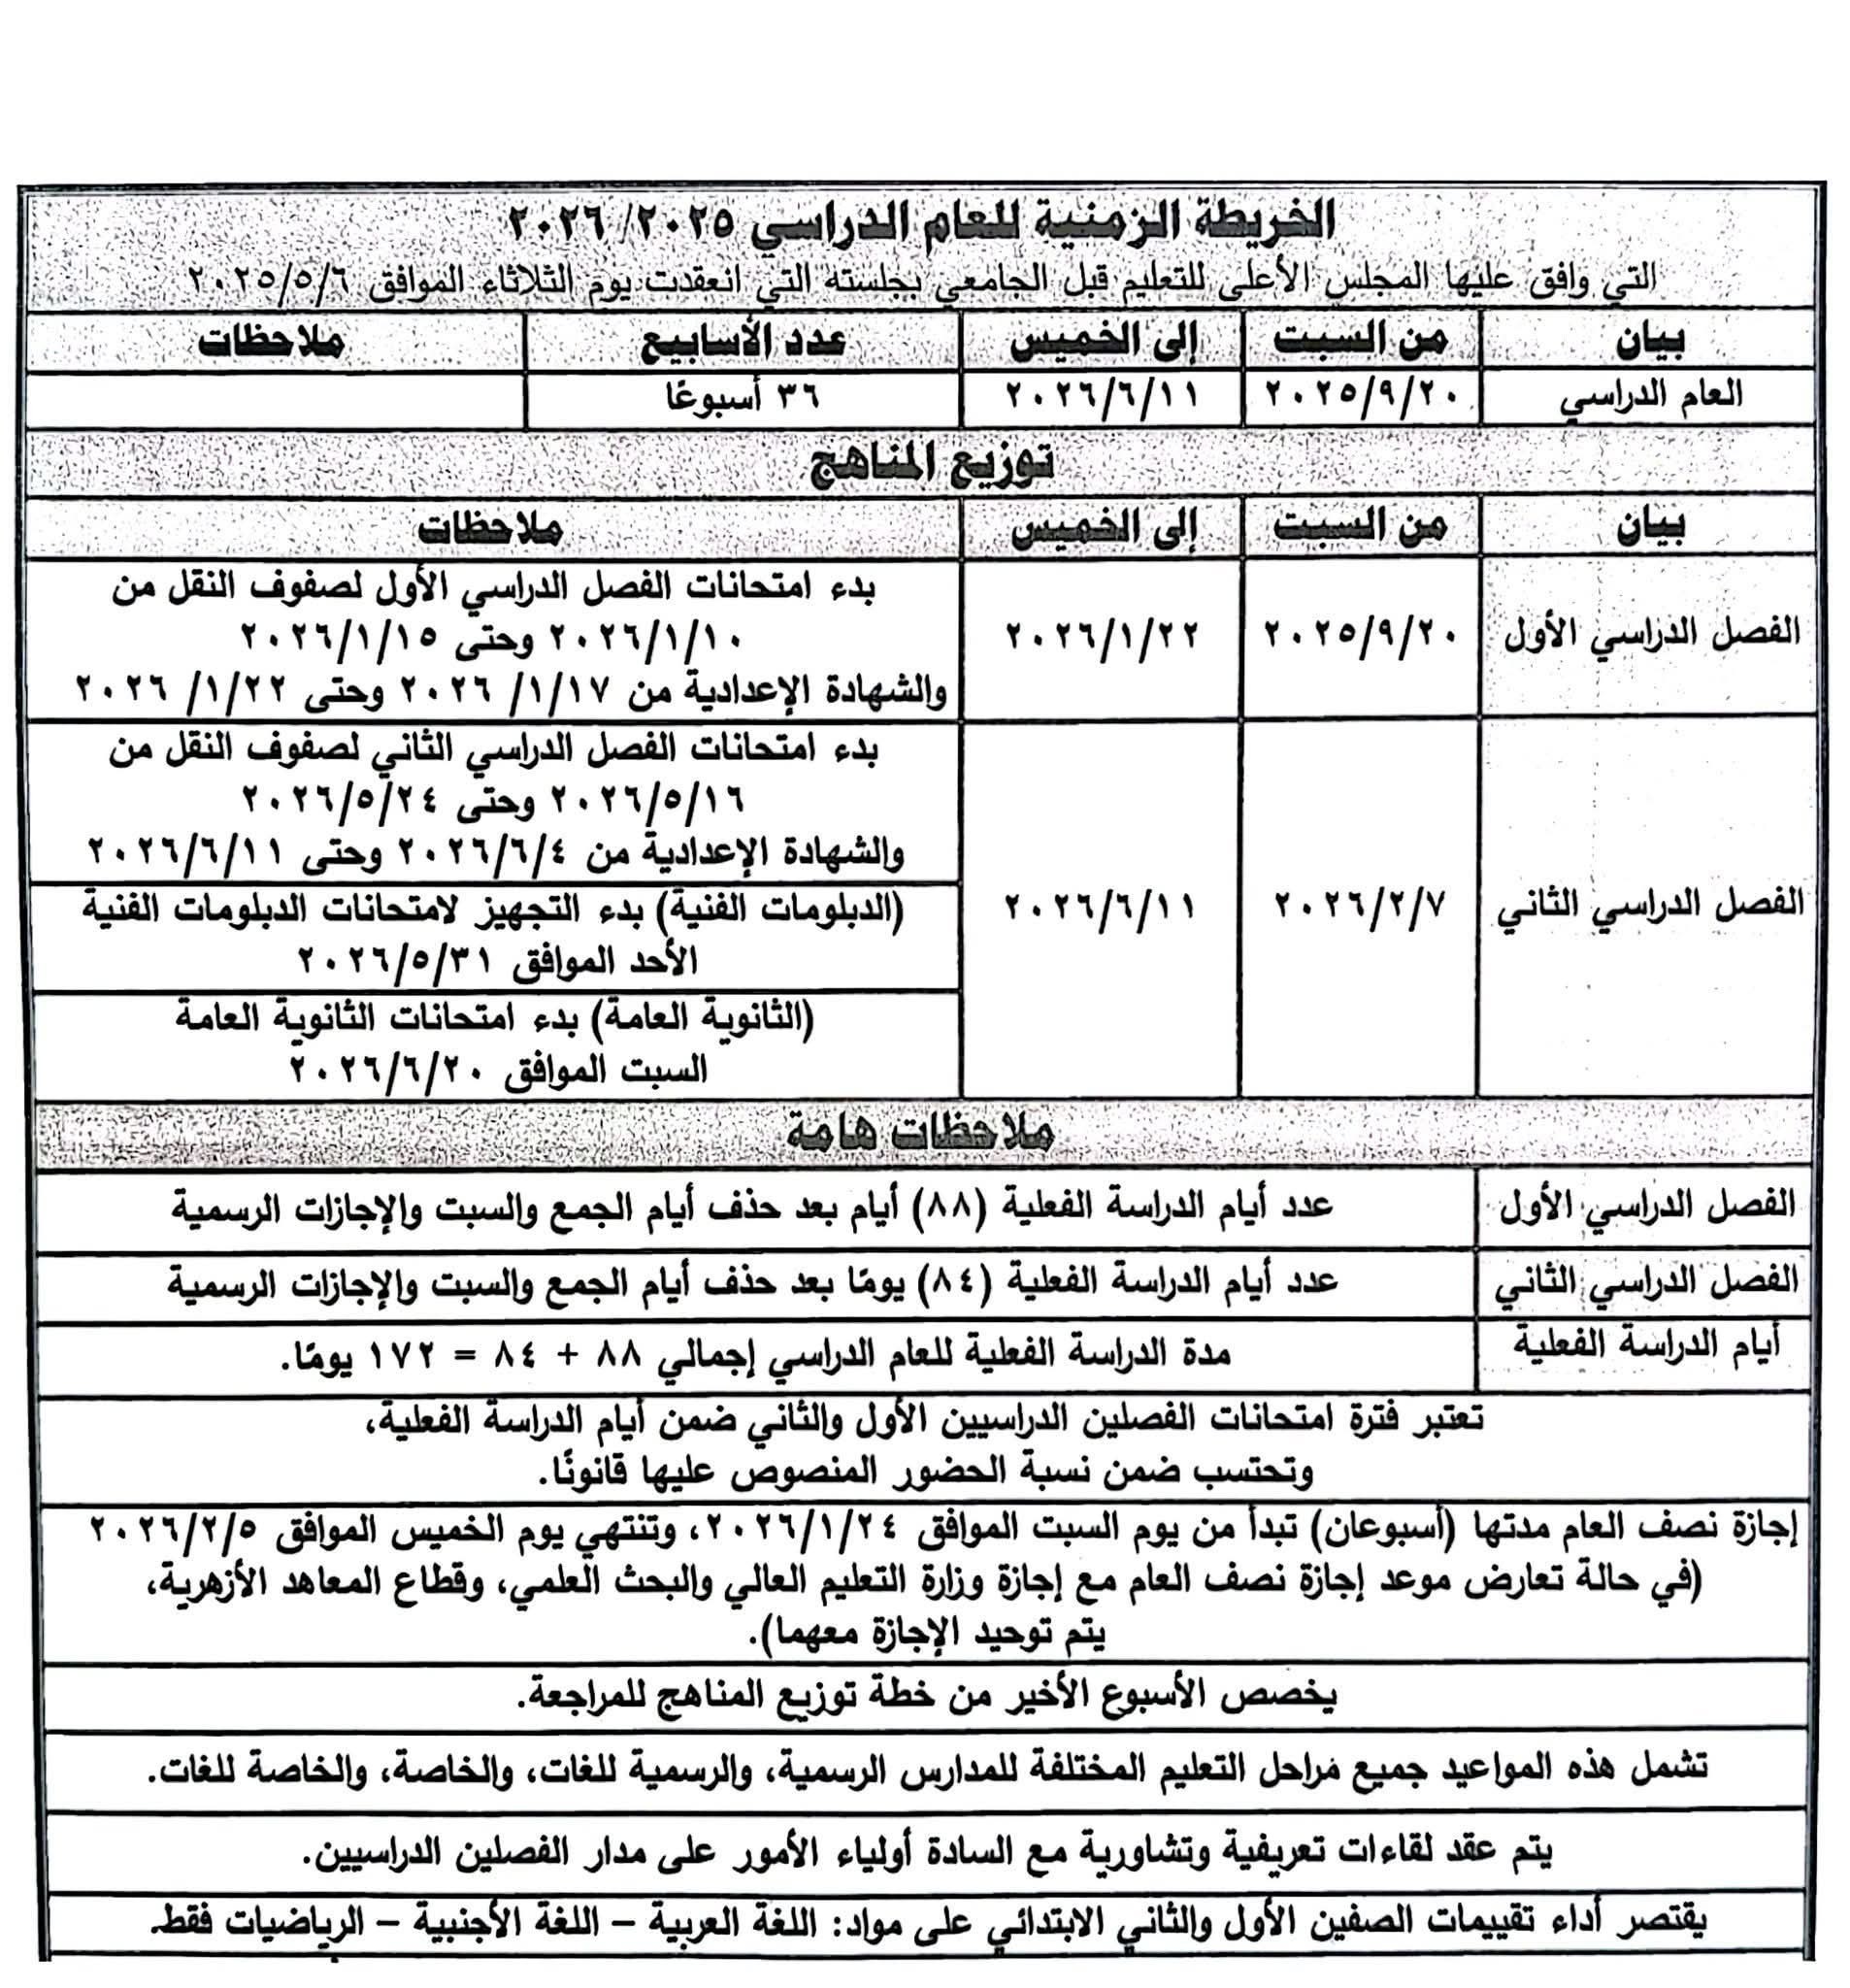 الخريطة الزمنية للعام الدراسي ٢٠٢٥/ ٢٠٢٦
التي وافق عليها المجلس الأعلى للتعليم قبل الجامعي بجلسته التي انعقدت يوم الثلاثاء الموافق ٢٠٢٥/٥/٦
بيان من السبت إلى الخميس عدد الأسابيع ملاحظات
العام الدراسي ٢٠٢٥/٩/٢٠ ٢٠٢٦/٦/١١ ٣٦ أسبوعًا
توزيع المناهج
بيان من السبت إلى الخميس ملاحظات
الفصل الدراسي الأول ٢٠٢٥/٩/٢٠ ٢٠٢٦/١/٢٢
بدء امتحانات الفصل الدراسي الأول لصفوف النقل من
٢٠٢٦/١/١٠ وحتى ٢٠٢٦/١/١٥
والشهادة الإعدادية من ١٧/١/ ٢٠٢٦ وحتى ١/٢٢/ ٢٠٢٦
الفصل الدراسي الثاني ٢٠٢٦/٢/٧ ٢٠٢٦/٦/١١
بدء امتحانات الفصل الدراسي الثاني لصفوف النقل من
٢٠٢٦/٥/١٦ وحتى ٢٠٢٦/٥/٢٤
والشهادة الإعدادية من ٢٠٢٦/٦/٤ وحتى ٢٠٢٦/٦/١١
(الدبلومات الفنية) بدء التجهيز لامتحانات الدبلومات الفنية
الأحد الموافق ٢٠٢٦/٥/٣١
(الثانوية العامة) بدء امتحانات الثانوية العامة
السبت الموافق ٢٠٢٦/٦/٢٠
ملاحظات هامة
الفصل الدراسي الأول عدد أيام الدراسة الفعلية (٨٨) أيام بعد حذف أيام الجمع والسبت والإجازات الرسمية
الفصل الدراسي الثاني عدد أيام الدراسة الفعلية (٨٤) يومًا بعد حذف أيام الجمع والسبت والإجازات الرسمية
أيام الدراسة الفعلية مدة الدراسة الفعلية للعام الدراسي إجمالي ٨٨ + ٨٤ = ١٧٢ يومًا.
تعتبر فترة امتحانات الفصلين الدراسيين الأول والثاني ضمن أيام الدراسة الفعلية،
وتحتسب ضمن نسبة الحضور المنصوص عليها قانونًا.
إجازة نصف العام مدتها (أسبوعان) تبدأ من يوم السبت الموافق ٢٠٢٦/١/٢٤، وتنتهي يوم الخميس الموافق ٢٠٢٦/٢/٥
(في حالة تعارض موعد إجازة نصف العام مع إجازة وزارة التعليم العالي والبحث العلمي، وقطاع المعاهد الأزهرية،
يتم توحيد الإجازة معهما).
يخصص الأسبوع الأخير من خطة توزيع المناهج للمراجعة.
تشمل هذه المواعيد جميع مراحل التعليم المختلفة للمدارس الرسمية، والرسمية للغات، والخاصة، والخاصة للغات.
يتم عقد لقاءات تعريفية وتشاورية مع السادة أولياء الأمور على مدار الفصلين الدراسيين.
يقتصر أداء تقييمات الصفين الأول والثاني الابتدائي على مواد: اللغة العربية – اللغة الأجنبية – الرياضيات فقط.